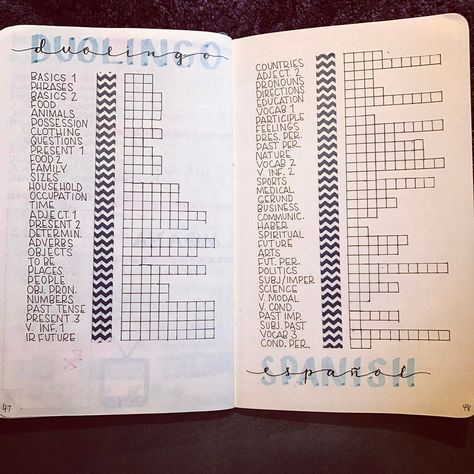 DUOLINGO
duolingo
BASICS 1
PHRASES
BASICS 2
FOOD
ANIMALS
POSSESSION
CLOTHING
QUESTIONS
PRESENT 1
FOOD 2
FAMILY
SIZES
HOUSEHOLD
OCCUPATION
TIME
ADJECT 1
PRESENT 2
DETERMIN.
ADVERBS
OBJECTS
TO BE
PLACES
PEOPLE
OBJ. PRON.
NUMBERS
PAST TENSE
PRESENT 3
V. INF. 1
IR FUTURE
47
COUNTRIES
ADJECT. 2
PRONOUNS
DIRECTIONS
EDUCATION
VOCAB 1
PARTICIPLE
FEELINGS
PRES. PER.
PAST PER.
NATURE
VOCAB 2
V. INF. 2
SPORTS
MEDICAL
GERUND
BUSINESS
COMMUNIC.
HABER
SPIRITUAL
FUTURE
ARTS
FUT. PER.
POLITICS
SUBJ/IMPER
SCIENCE
V. MODAL
V. COND.
PAST IMP.
SUBJ. PAST
VOCAB 3
COND. PER.
SPANISH
español
48